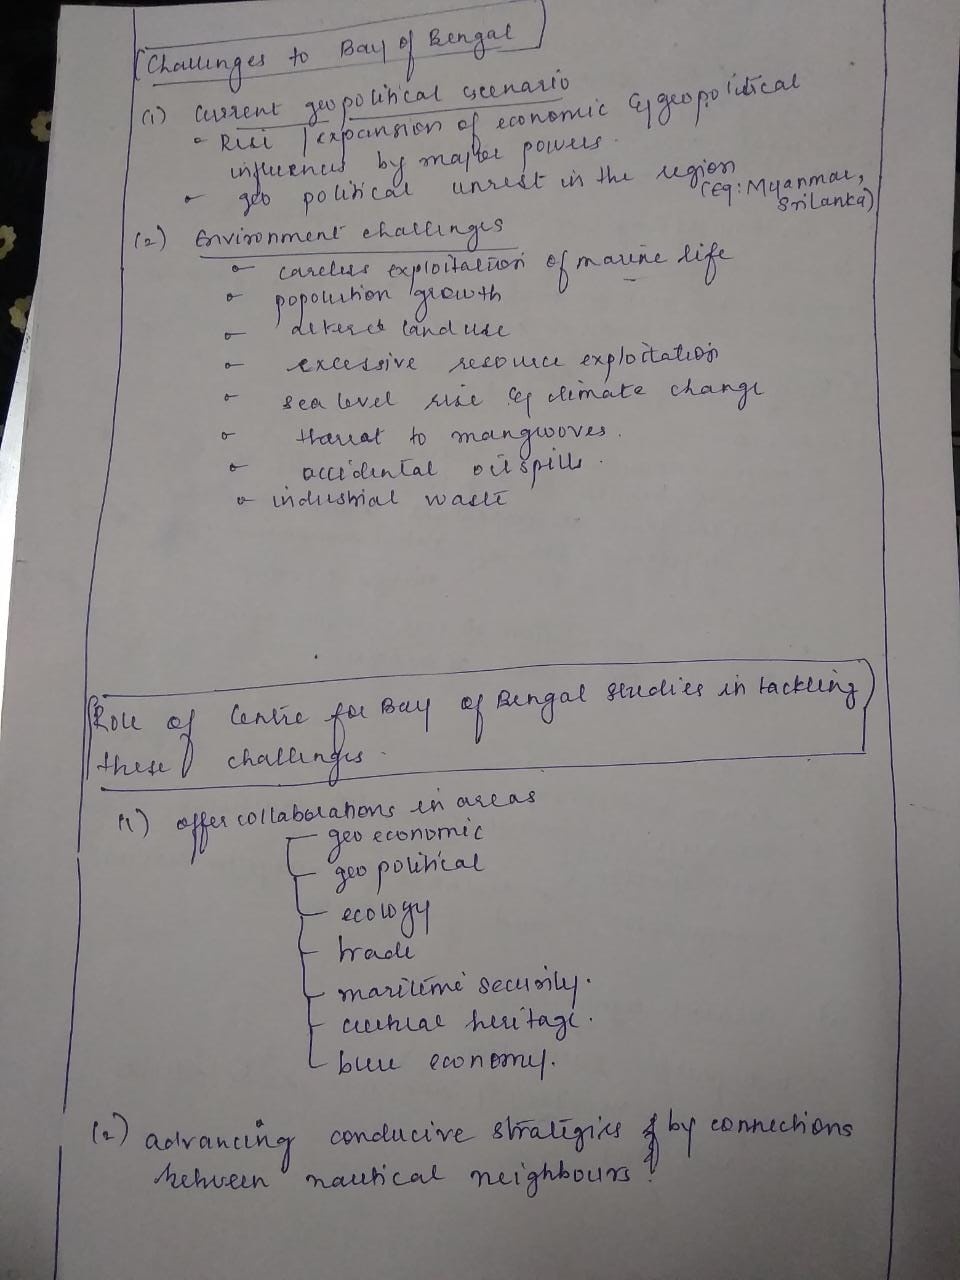 Challenges to Bay of Bengal
(1) Current geopolitical scenario
- Rise / expansion of economic & geopolitical
influences by major powers.
- geo political unrest in the region
(Eg: Myanmar,
Srilanka)
(2) Environment challenges
- careless exploitation of marine life
- popolution growth
- altered land use
- excessive resource exploitation
- sea level rise & climate change
- threat to mangrooves.
- accidental oil spills.
- industrial waste
Role of Centre for Bay of Bengal studies in tackling
these challenges.
(1) offer collaborations in areas
- geo economic
- geo political
- ecology
- trade
- maritime security.
- cultural heritage.
- blue economy.
(2) advancing conducive strategies by connections
between nautical neighbours.